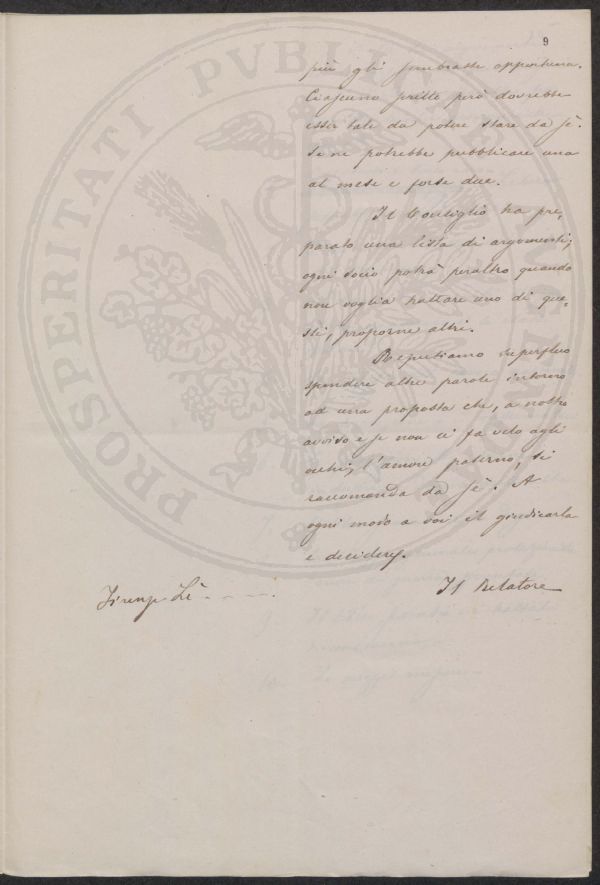 9
più gli sembrasse opportuna.
Ciascuno scritto però dovrebbe
esser tale da potere stare da sè.
Se ne potrebbe pubblicare una
al mese e forse due.
Il Consiglio ha pre,
parato una lista di argomenti;
ogni socio potrà peraltro quando
non voglia trattare uno di que,
sti, proporne altri.
Reputiamo superfluo
spendere altre parole intorno
ad una proposta che, a nostro
avviso e se non ci fa velo agli
occhi, l'amore paterno, si
raccomanda da sè. A
ogni modo a voi il giudicarla
e decidere.
Firenze Lì - - - - .
Il Relatore
PROSPERITATI PVBLI